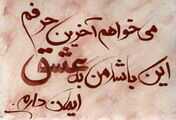 می‌خواهم آخرین حرفم
این باشد من به عشق
ایمان دارم